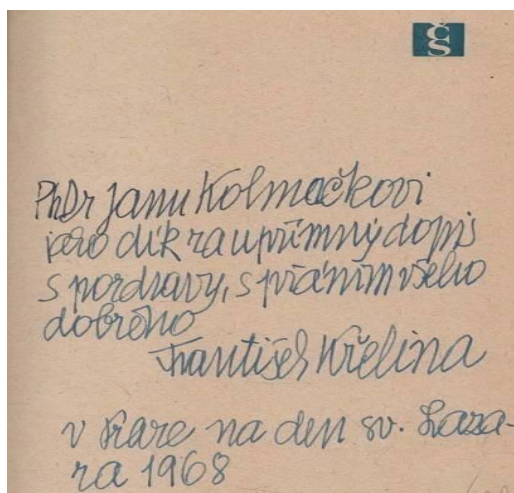 ČS
PhDr Janu Kolmačkovi
jako dík za upřímný dopis
s pozdravy, s přáním všeho
dobrého
František Křelina
v Praze na den sv. Laza-
ra 1968